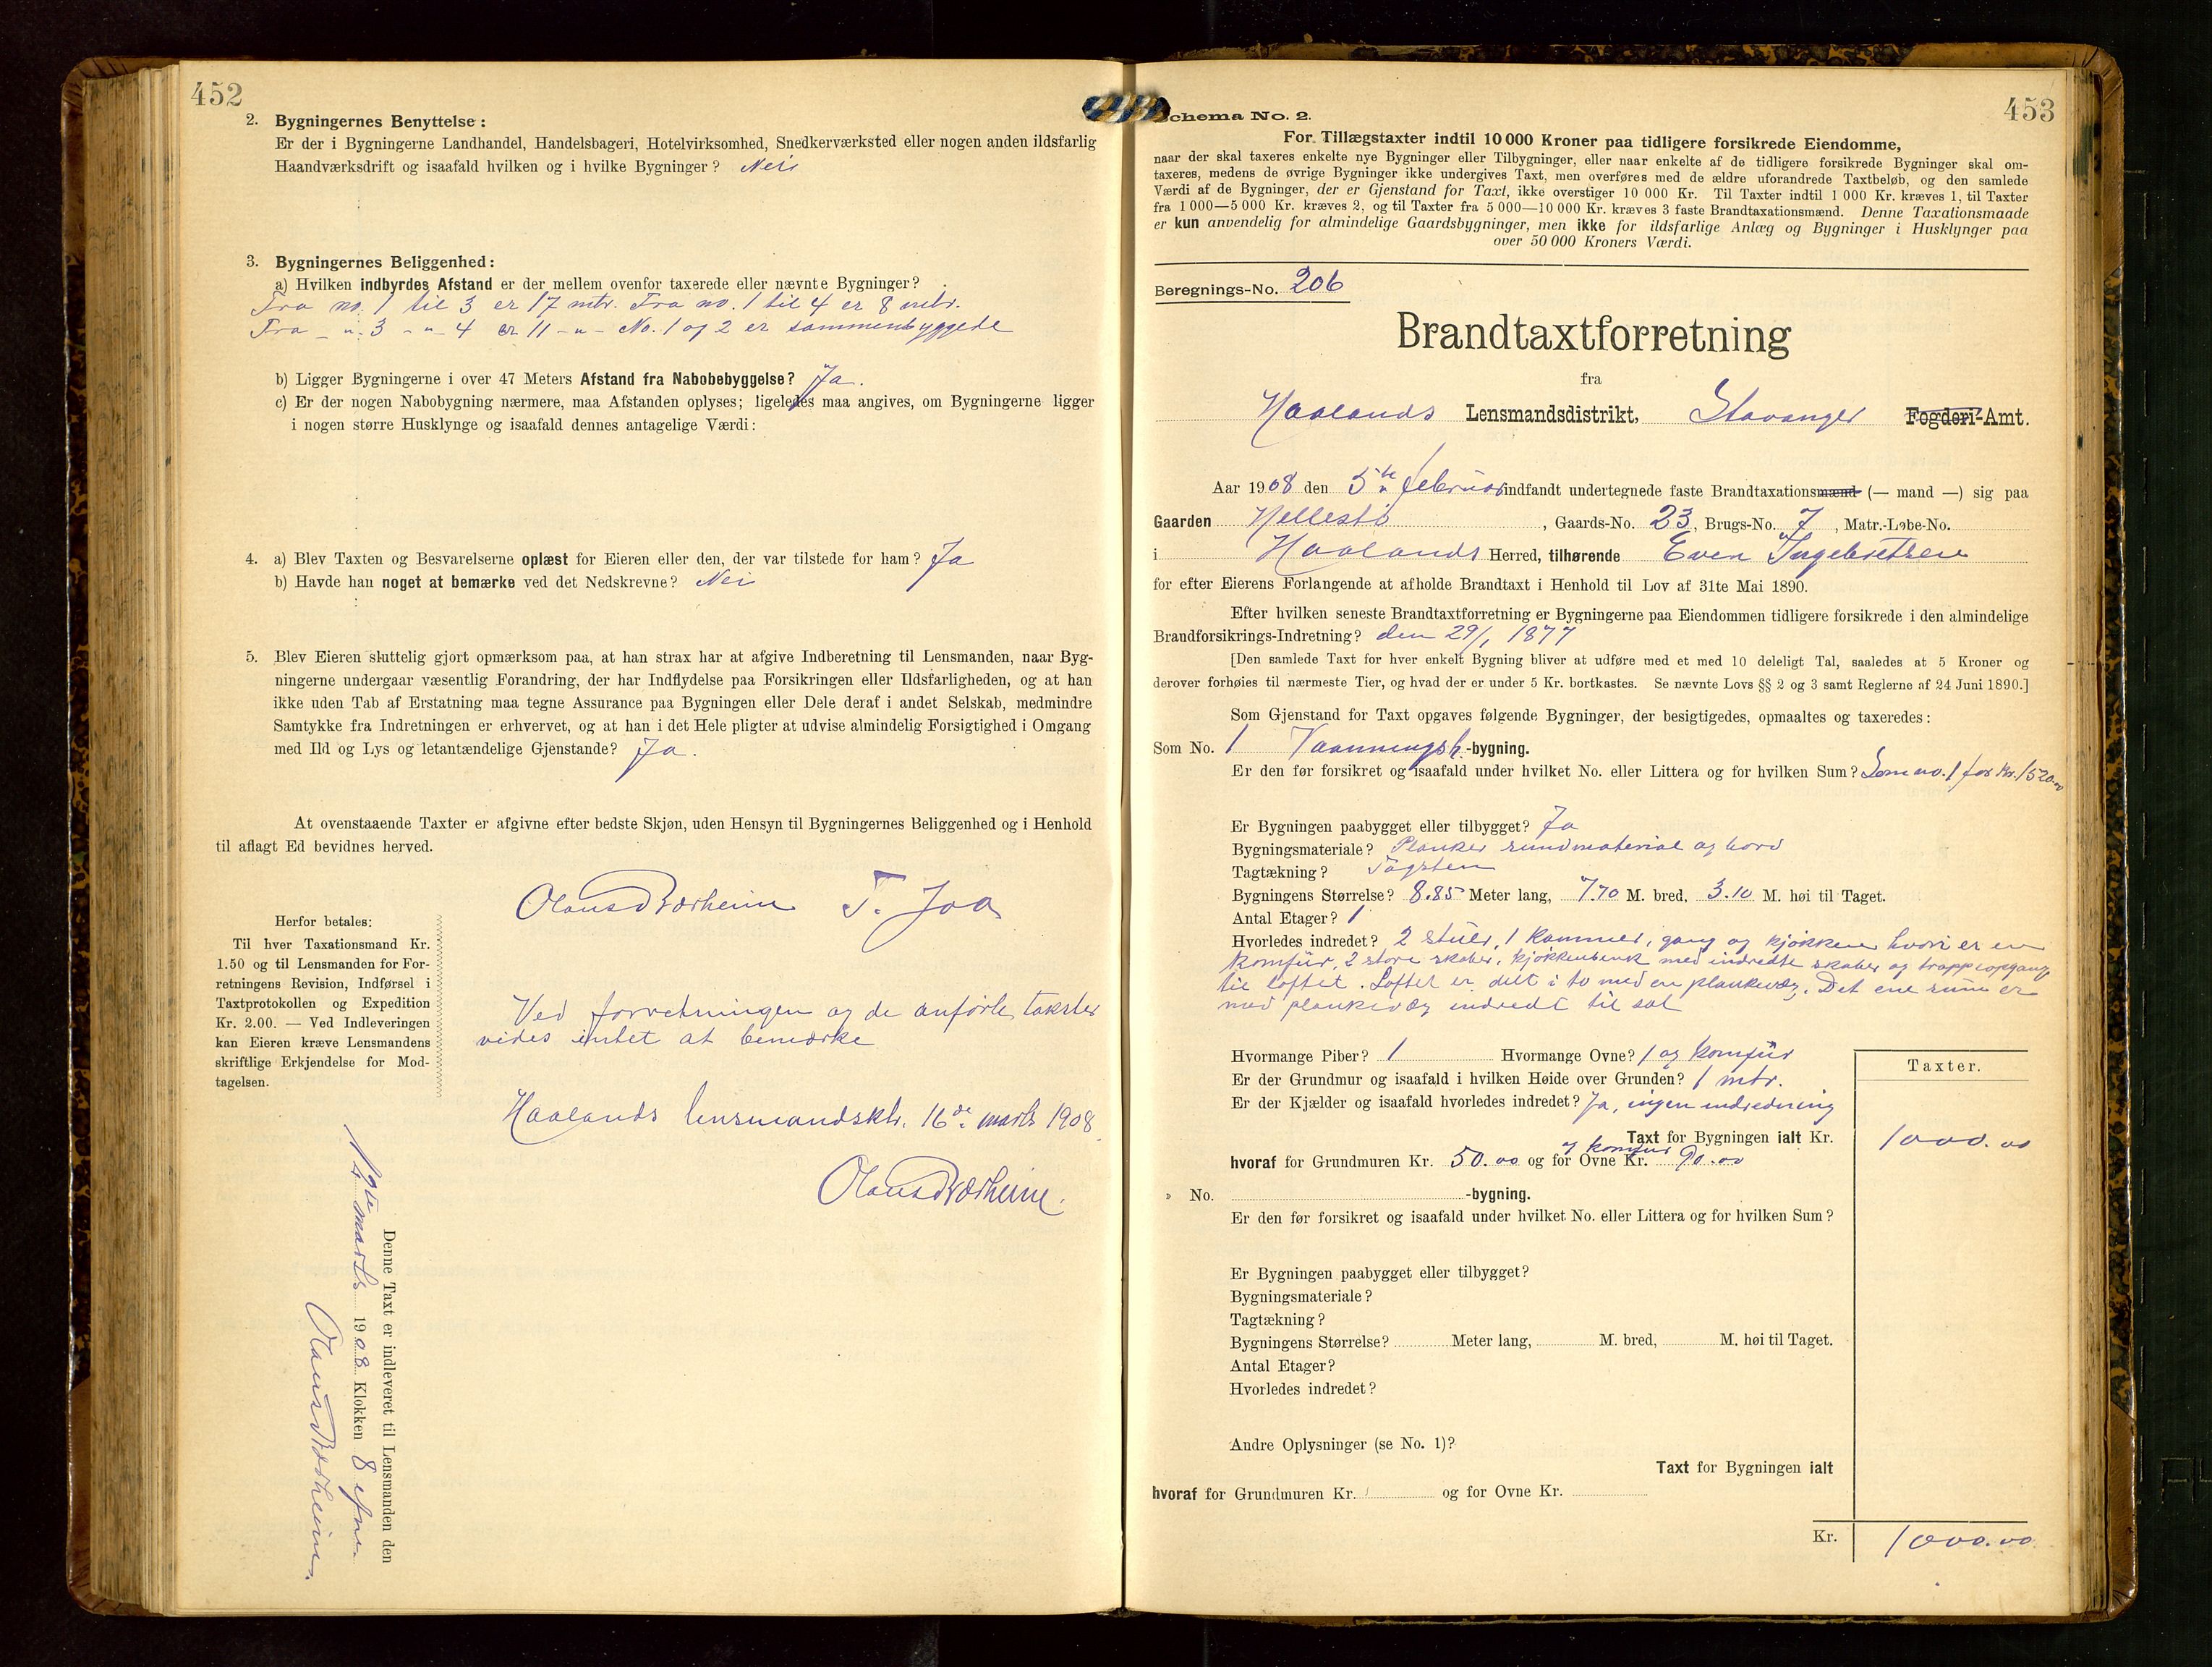 452
2. Bygningernes Benyttelse:
Er der i Bygningerne Landhandel, Handelsbageri, Hotelvirksomhed, Snedkerværksted eller nogen anden ildsfarlig
Haandværksdrift og isaafald hvilken og i hvilke Bygninger? Nei
3. Bygningernes Beliggenhed:
a) Hvilken indbyrdes Afstand er der mellem ovenfor taxerede eller nævnte Bygninger?
Fra no. 1 til 3 er 17 mtr. Fra no. 1 til 4 er 8 mtr.
Fra - " 3 - " - 4 er 11 - " - No. 1 og 2 er sammenbyggede
b) Ligger Bygningerne i over 47 Meters Afstand fra Nabobebyggelse? Ja.
c) Er der nogen Nabobygning nærmere, maa Afstanden oplyses; ligeledes maa angives, om Bygningerne ligger
i nogen større Husklynge og isaafald dennes antagelige Værdi:
4. a) Blev Taxten og Besvarelserne oplæst for Eieren eller den, der var tilstede for ham? Ja
b) Havde han noget at bemærke ved det Nedskrevne? Nei
5. Blev Eieren sluttelig gjort opmærksom paa, at han strax har at afgive Indberetning til Lensmanden, naar Byg-
ningerne undergaar væsentlig Forandring, der har Indflydelse paa Forsikringen eller Ildsfarligheden, og at han
ikke uden Tab af Erstatning maa tegne Assurance paa Bygningen eller Dele deraf i andet Selskab, medmindre
Samtykke fra Indretningen er erhvervet, og at han i det Hele pligter at udvise almindelig Forsigtighed i Omgang
med Ild og Lys og letantændelige Gjenstande? Ja.
At ovenstaaende Taxter er afgivne efter bedste Skjøn, uden Hensyn til Bygningernes Beliggenhed og i Henhold
til aflagt Ed bevidnes herved.
Olaus Bærheim T. Joa
Herfor betales:
Til hver Taxationsmand Kr.
1.50 og til Lensmanden for For-
retningens Revision, Indførsel i
Taxtprotokollen og Expedition
Kr. 2.00. — Ved Indleveringen
kan Eieren kræve Lensmandens
skriftlige Erkjendelse for Mod-
tagelsen.
Ved forretningen og de anførte takster
vides intet at bemærke
Haalands lensmandsktr. 16de marts 1908
Olaus Bærheim.
Denne Taxt er indleveret til Lensmanden den
marts 1908 Klokken 8
Olaus Bærheim.
453
Schema No. 2.
For Tillægstaxter indtil 10 000 Kroner paa tidligere forsikrede Eiendomme,
naar der skal taxeres enkelte nye Bygninger eller Tilbygninger, eller naar enkelte af de tidligere forsikrede Bygninger skal om-
taxeres, medens de øvrige Bygninger ikke undergives Taxt, men overføres med de ældre uforandrede Taxtbeløb, og den samlede
Værdi af de Bygninger, der er Gjenstand for Taxt, ikke overstiger 10 000 Kr. Til Taxter indtil 1 000 Kr. kræves 1, til Taxter
fra 1 000—5 000 Kr. kræves 2, og til Taxter fra 5 000—10 000 Kr. kræves 3 faste Brandtaxationsmænd. Denne Taxationsmaade
er kun anvendelig for almindelige Gaardsbygninger, men ikke for ildsfarlige Anlæg og Bygninger i Husklynger paa
over 50 000 Kroners Værdi.
Beregnings-No. 206
Brandtaxtforretning
fra
Haalands Lensmandsdistrikt, Stavanger Fogderi-Amt.
Aar 1908 den 5te februar indfandt undertegnede faste Brandtaxationsmænd (— mand —) sig paa
Gaarden Hellestø, Gaards-No. 23, Brugs-No. 7, Matr.-Løbe-No.
i Haalands Herred, tilhørende Even Ingebretsen
for efter Eierens Forlangende at afholde Brandtaxt i Henhold til Lov af 31te Mai 1890.
Efter hvilken seneste Brandtaxtforretning er Bygningerne paa Eiendommen tidligere forsikrede i den almindelige
Brandforsikrings-Indretning? den 29/1 1877
[Den samlede Taxt for hver enkelt Bygning bliver at udføre med et med 10 deleligt Tal, saaledes at 5 Kroner og
derover forhøies til nærmeste Tier, og hvad der er under 5 Kr. bortkastes. Se nævnte Lovs §§ 2 og 3 samt Reglerne af 24 Juni 1890.]
Som Gjenstand for Taxt opgaves følgende Bygninger, der besigtigedes, opmaaltes og taxeredes:
Som No. 1 Vaaningsh.-bygning.
Er den før forsikret og isaafald under hvilket No. eller Littera og for hvilken Sum? Som no. 1 for kr. 1520.00
Er Bygningen paabygget eller tilbygget? Ja
Bygningsmateriale? Planker rundmateriale og bord
Tagtækning? Tagsten
Bygningens Størrelse? 8.85 Meter lang, 7.70 M. bred, 3.10 M. høi til Taget.
Antal Etager? 1
Hvorledes indredet? 2 stuer, 1 kammer, gang og kjøkken hvori er en
komfur, 2 store skaber, kjøkkenbænk med indredte skaber og trappeopgang
til loftet. Loftet er delt i to med en plankevæg. Det ene rum er
med plankevæg indredt til sal
Hvormange Piber? 1 Hvormange Ovne? 1 og komfur
Er der Grundmur og isaafald i hvilken Høide over Grunden? 1 mtr.
Er der Kjælder og isaafald hvorledes indredet? Ja, ingen indredning
Taxter.
Taxt for Bygningen ialt Kr. 1000.00
hvoraf for Grundmuren Kr. 50.00 og for Ovne og komfur Kr. 90.00
» No. -bygning.
Er den før forsikret og isaafald under hvilket No. eller Littera og for hvilken Sum?
Er Bygningen paabygget eller tilbygget?
Bygningsmateriale?
Tagtækning?
Bygningens Størrelse? Meter lang, M. bred, M. høi til Taget.
Antal Etager?
Hvorledes indredet?
Andre Oplysninger (se No. 1)?
Taxt for Bygningen ialt
hvoraf for Grundmuren Kr. og for Ovne Kr.
Kr. 1000.00